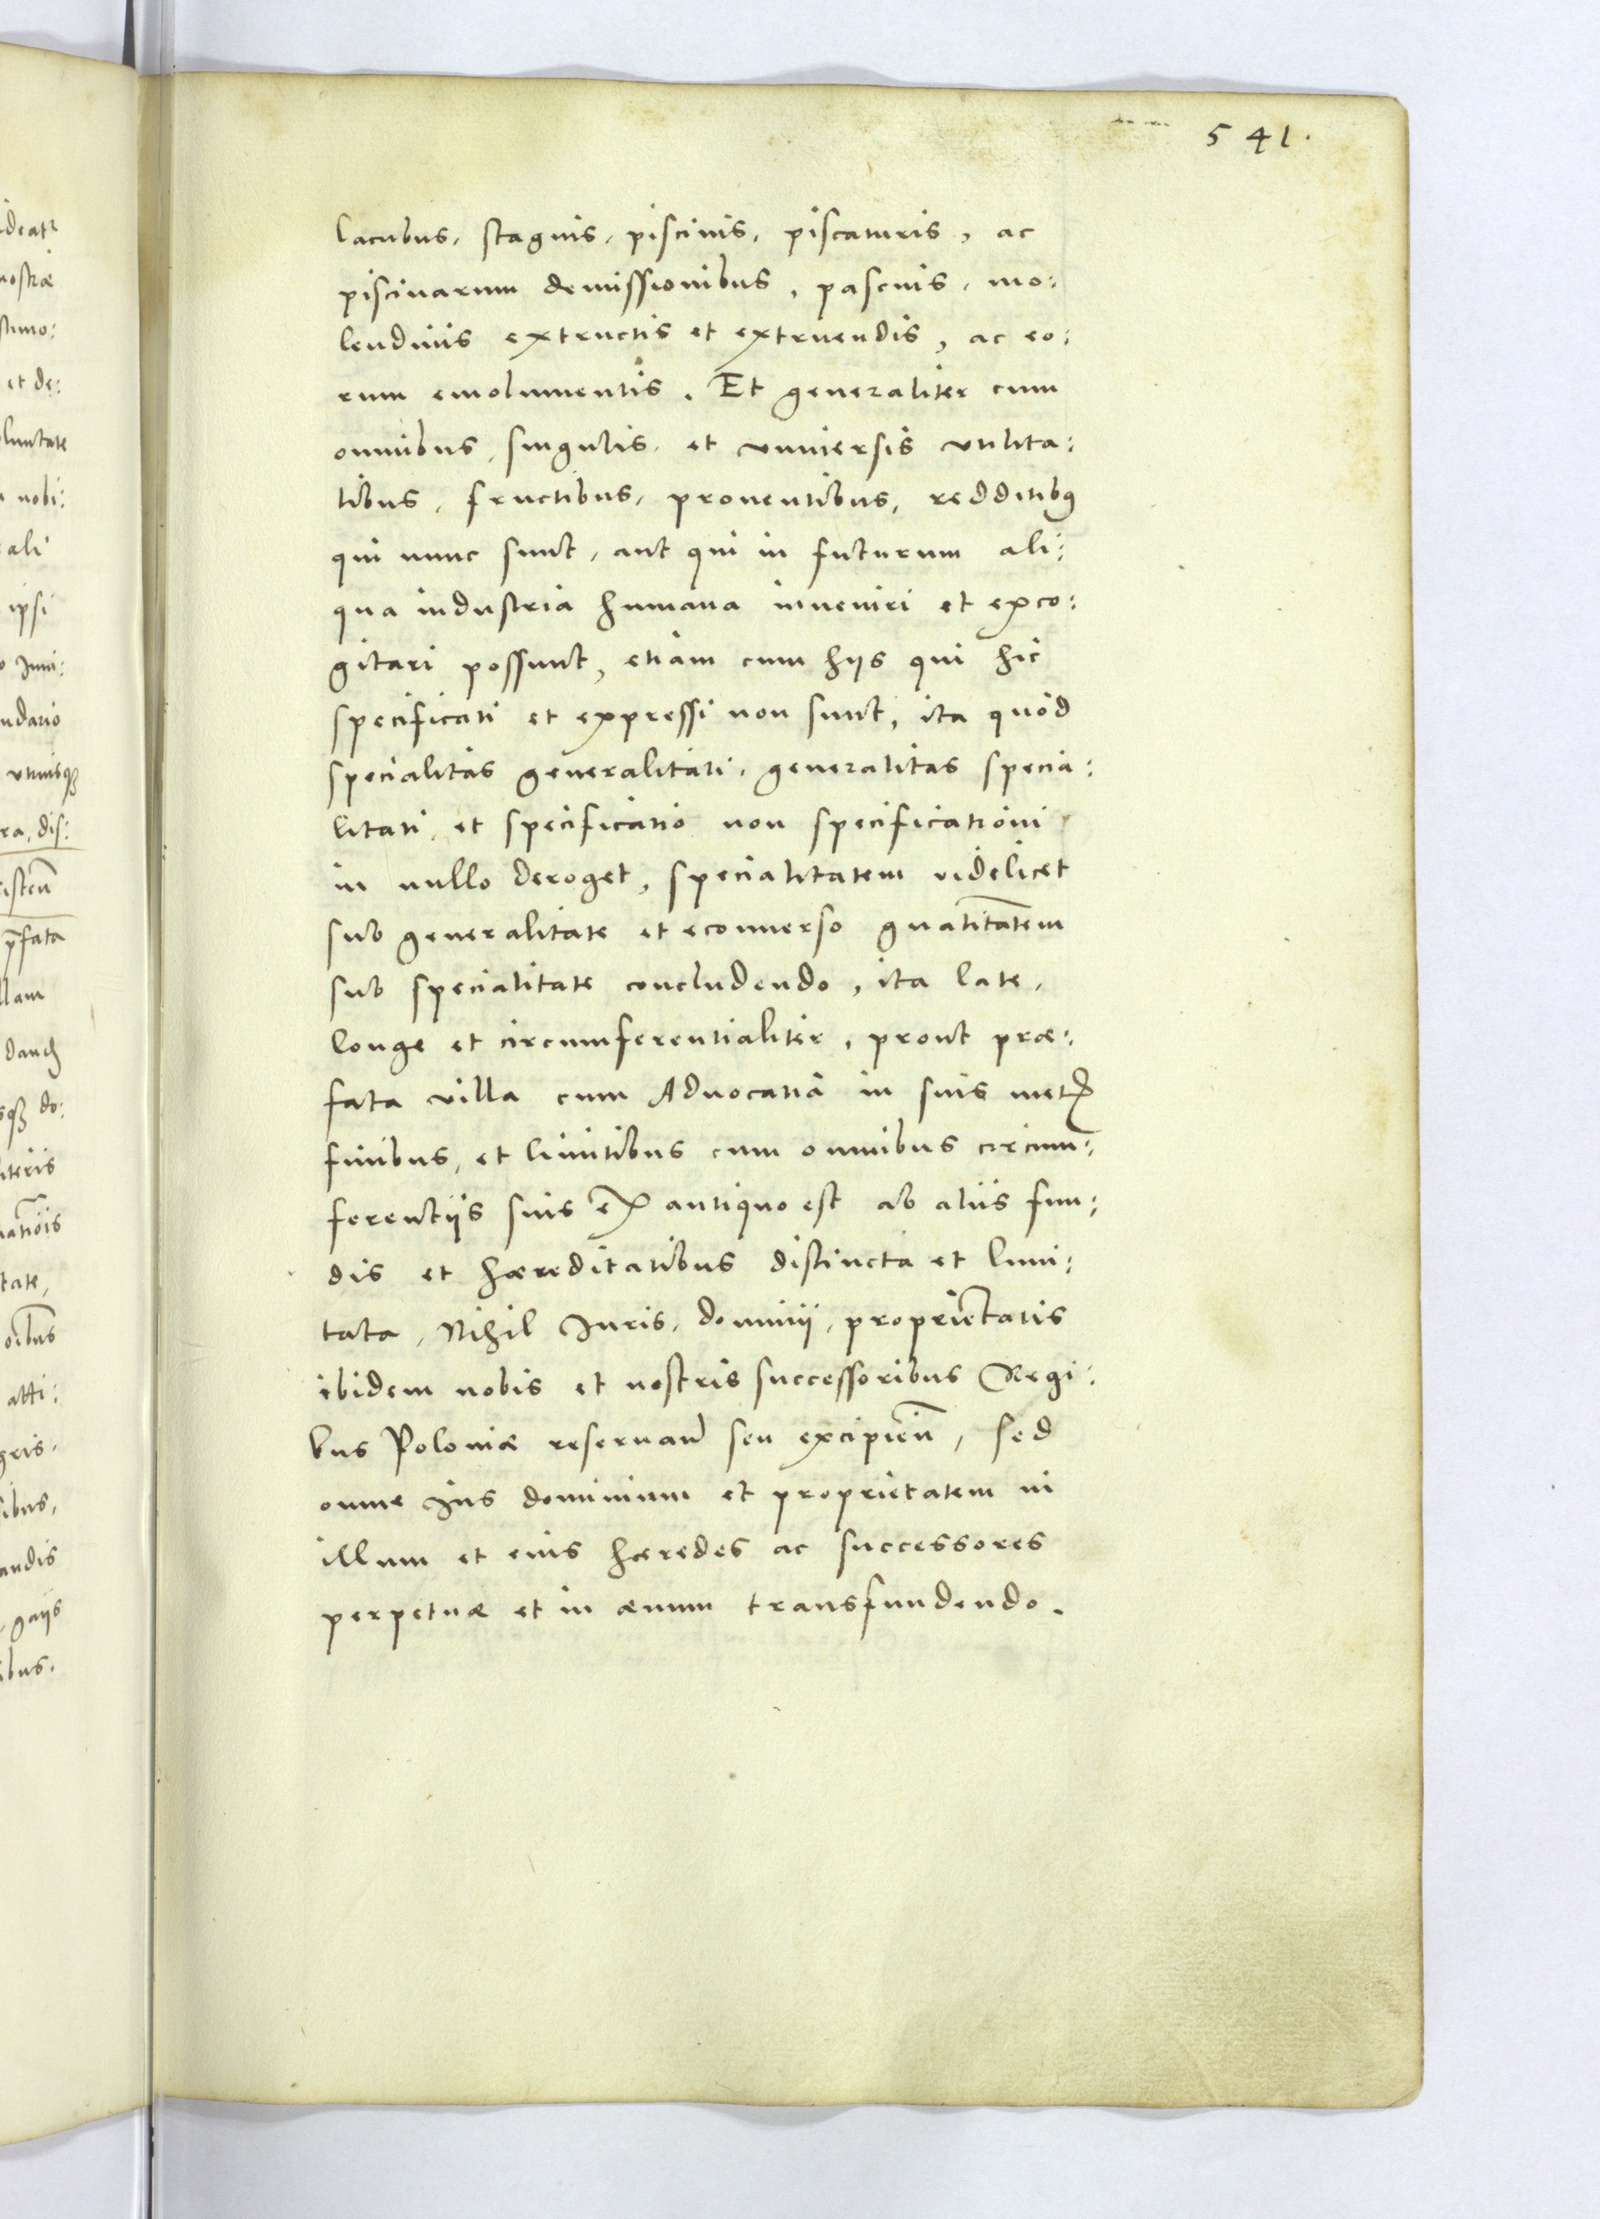 541.
lacubus, stagnis, piscinis, piscaturis, ac
piscinarum demissionibus, pascuis, mo:
lendinis extructis et extruendis, ac eo:
rum emolumentis. Et generaliter cum
omnibus, singulis, et vniuersis vtilita:
tibus, fructibus, prouentibus, redditibꝰ
qui nunc sunt, aut qui in futurum ali:
qua industria humana inueniri et exco:
gitari possunt, etiam cum hijs qui hic
specificati et expressi non sunt, ita quod
specialitas generalitati, generalitas specia:
litati, et specificatio non specificationi
in nullo deroget, specialitatem videlicet
sub generalitate et econuerso gnalitatem
sub specialitate concludendo, ita late,
longe et circumferentialiter, prout præ:
fata villa cum Aduocatia in suis metꝭ
finibus, et limitibus cum omnibus circum:
ferentijs suis ex antiquo est ab alijs fun:
dis et hæreditatibus distincta et limi:
tata, Nihil Iuris, dominij, proprietatis
ibidem nobis et nostris successoribus Regi:
bus Poloniæ reseruan̄ seu excipien̄, sed
omne Ius dominium et proprietatem in
illum et eius hæredes ac successores
perpetuæ et in æuum transfundendo.
ideatr
nostræ
et de:
luntate
nobi:
ali
ipsi
ndario
vtriusqꝫ
ra, dis:
p̄fata
llam
do:
literis
tate,
oībus
atti:
ibus,
andis
gaijs
ibus.